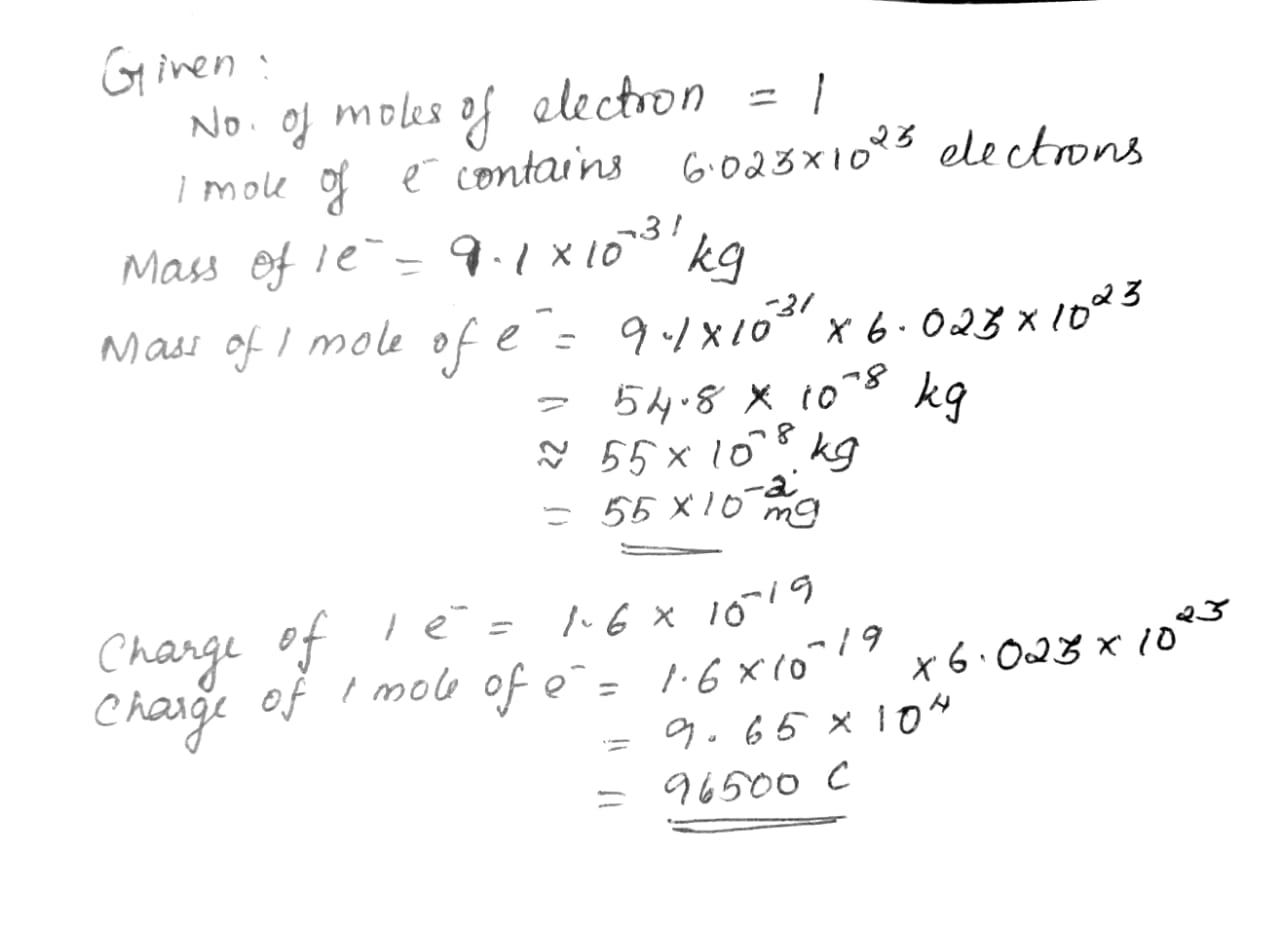 Given :
No. of moles of electron = 1
1 mole of e⁻ contains 6.023×10²³ electrons
Mass of 1e⁻ = 9.1 × 10⁻³¹ kg
Mass of 1 mole of e⁻ = 9.1×10⁻³¹ × 6.023 × 10²³
= 54.8 × 10⁻⁸ kg
≈ 55 × 10⁻⁸ kg
= 55 ×10⁻² mg
Charge of 1 e⁻ = 1.6 × 10⁻¹⁹
Charge of 1 mole of e⁻ = 1.6 ×10⁻¹⁹ ×6.023 × 10²³
= 9.65 × 10⁴
= 96500 C